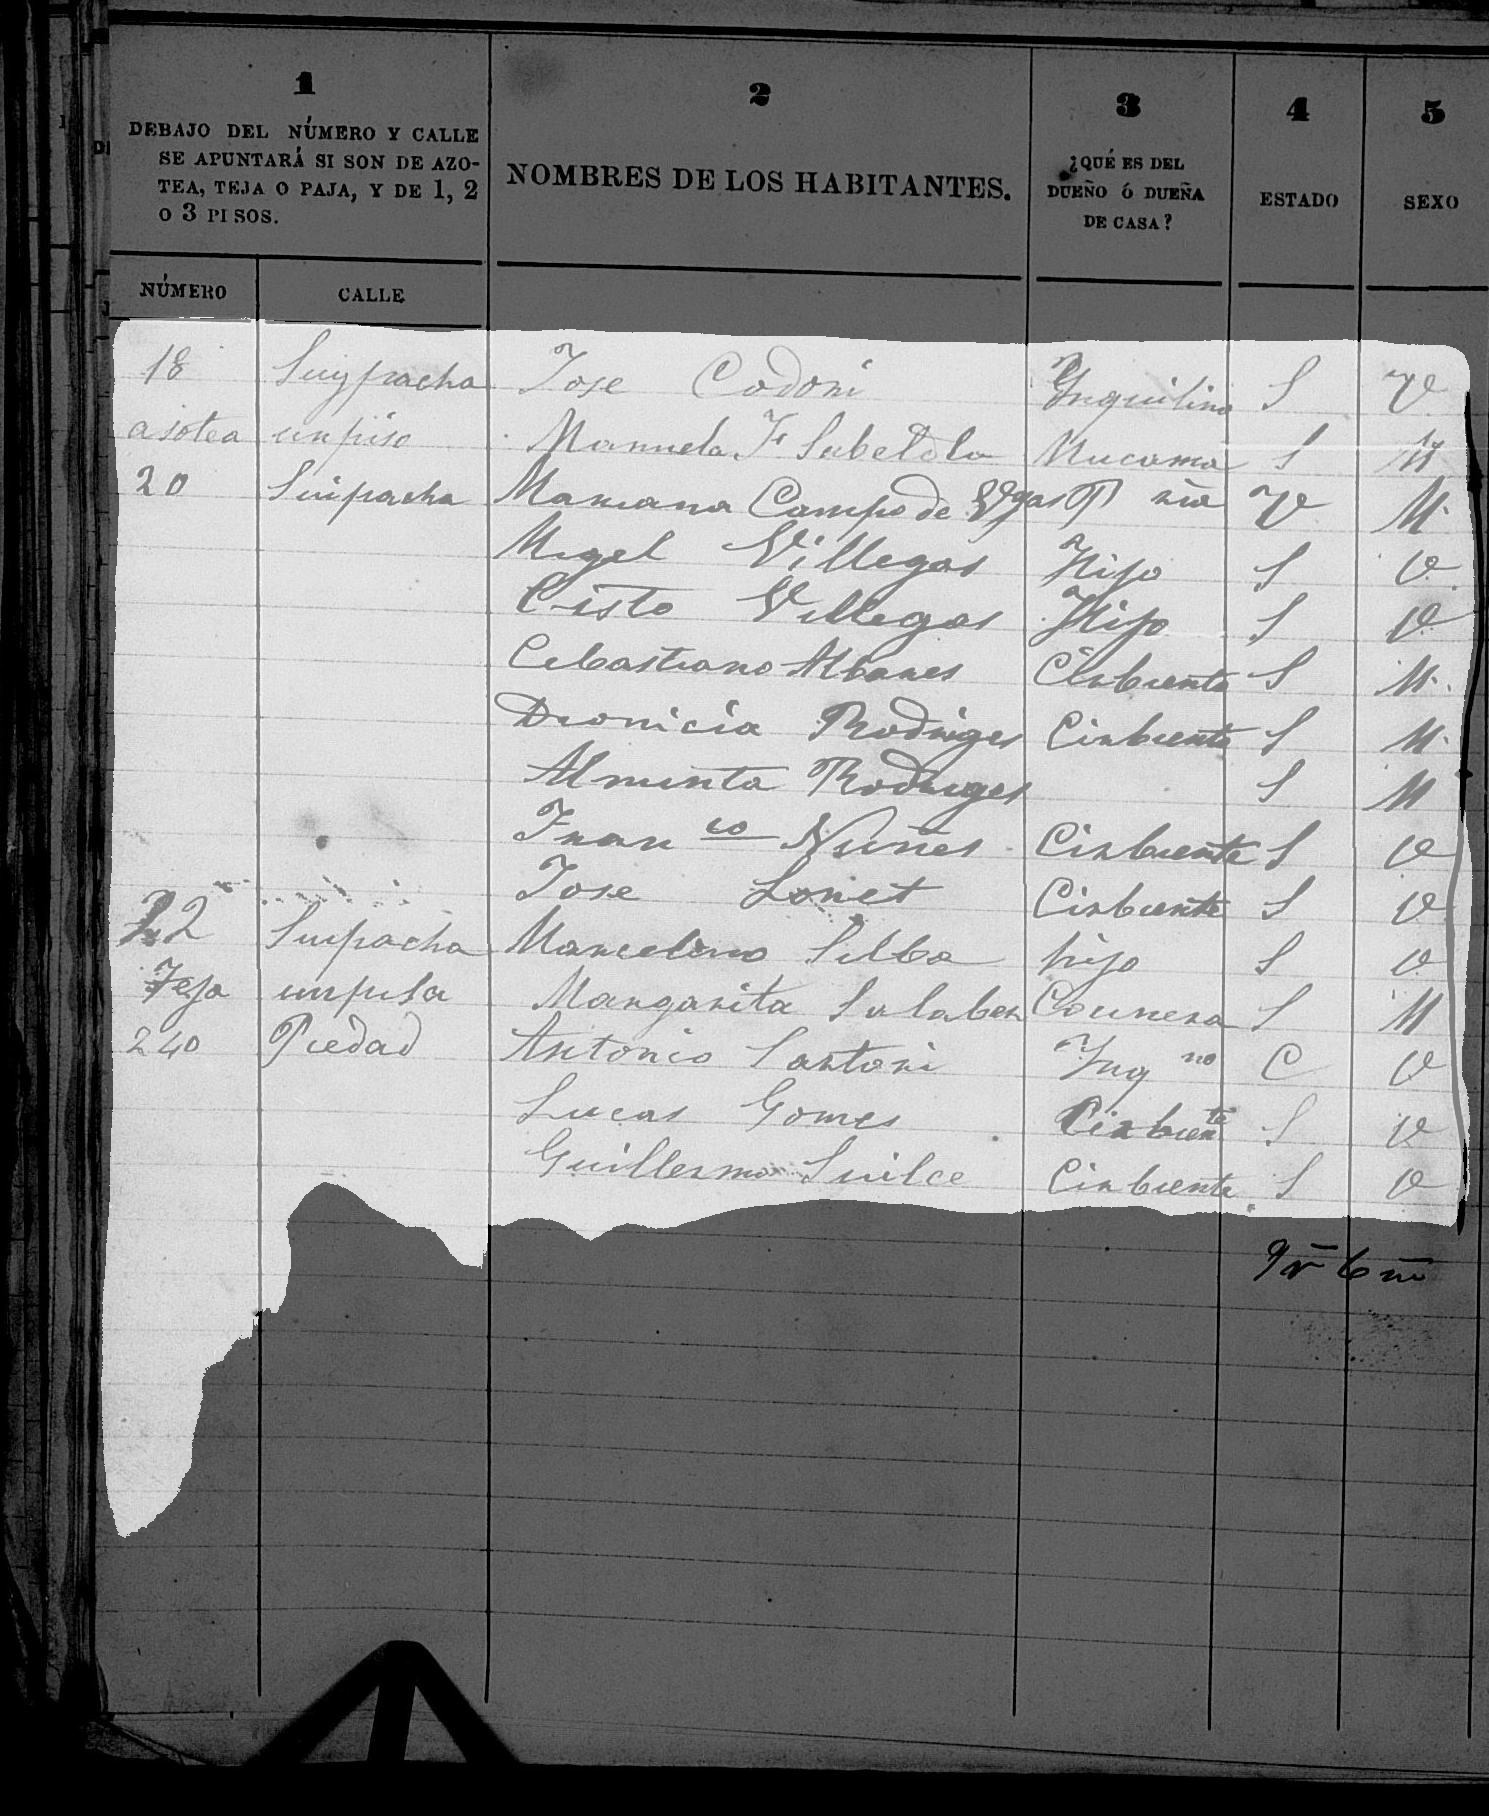 1 2 3 4 5
DEBAJO DEL NÚMERO Y CALLE
SE APUNTARÁ SI SON DE AZO-
TEA, TEJA O PAJA, Y DE 1, 2
O 3 PISOS.
NOMBRES DE LOS HABITANTES.
¿QUÉ ES DEL
DUEÑO Ó DUEÑA
DE CASA?
ESTADO
SEXO
NÚMERO CALLE
18 Suypacha Jose Codoni Ynquilino S V
asotea un piso Manuela F Mucama S M
20 Suipacha Mariana Campo de V M
Migel Villegas Hijo S V
Cisto Villegas Hijo S V
Cebastiana Albares Cirbienta S M
Dionicia Rodriges Cirbienta S M
Rodriges S M
Franco Nuñes Cirbiente S V
Jose Lonet Cirbiente S V
22 Suipacha Marcelino Silba hijo S V
Teja un pisa Margarita Salaber Cosinera S M
240 Piedad Antonio Santoni Ynq no C V
Lucas Gomes Cirbiente S V
Guillermo Suilce Cirbiente S V
9 v 6 m